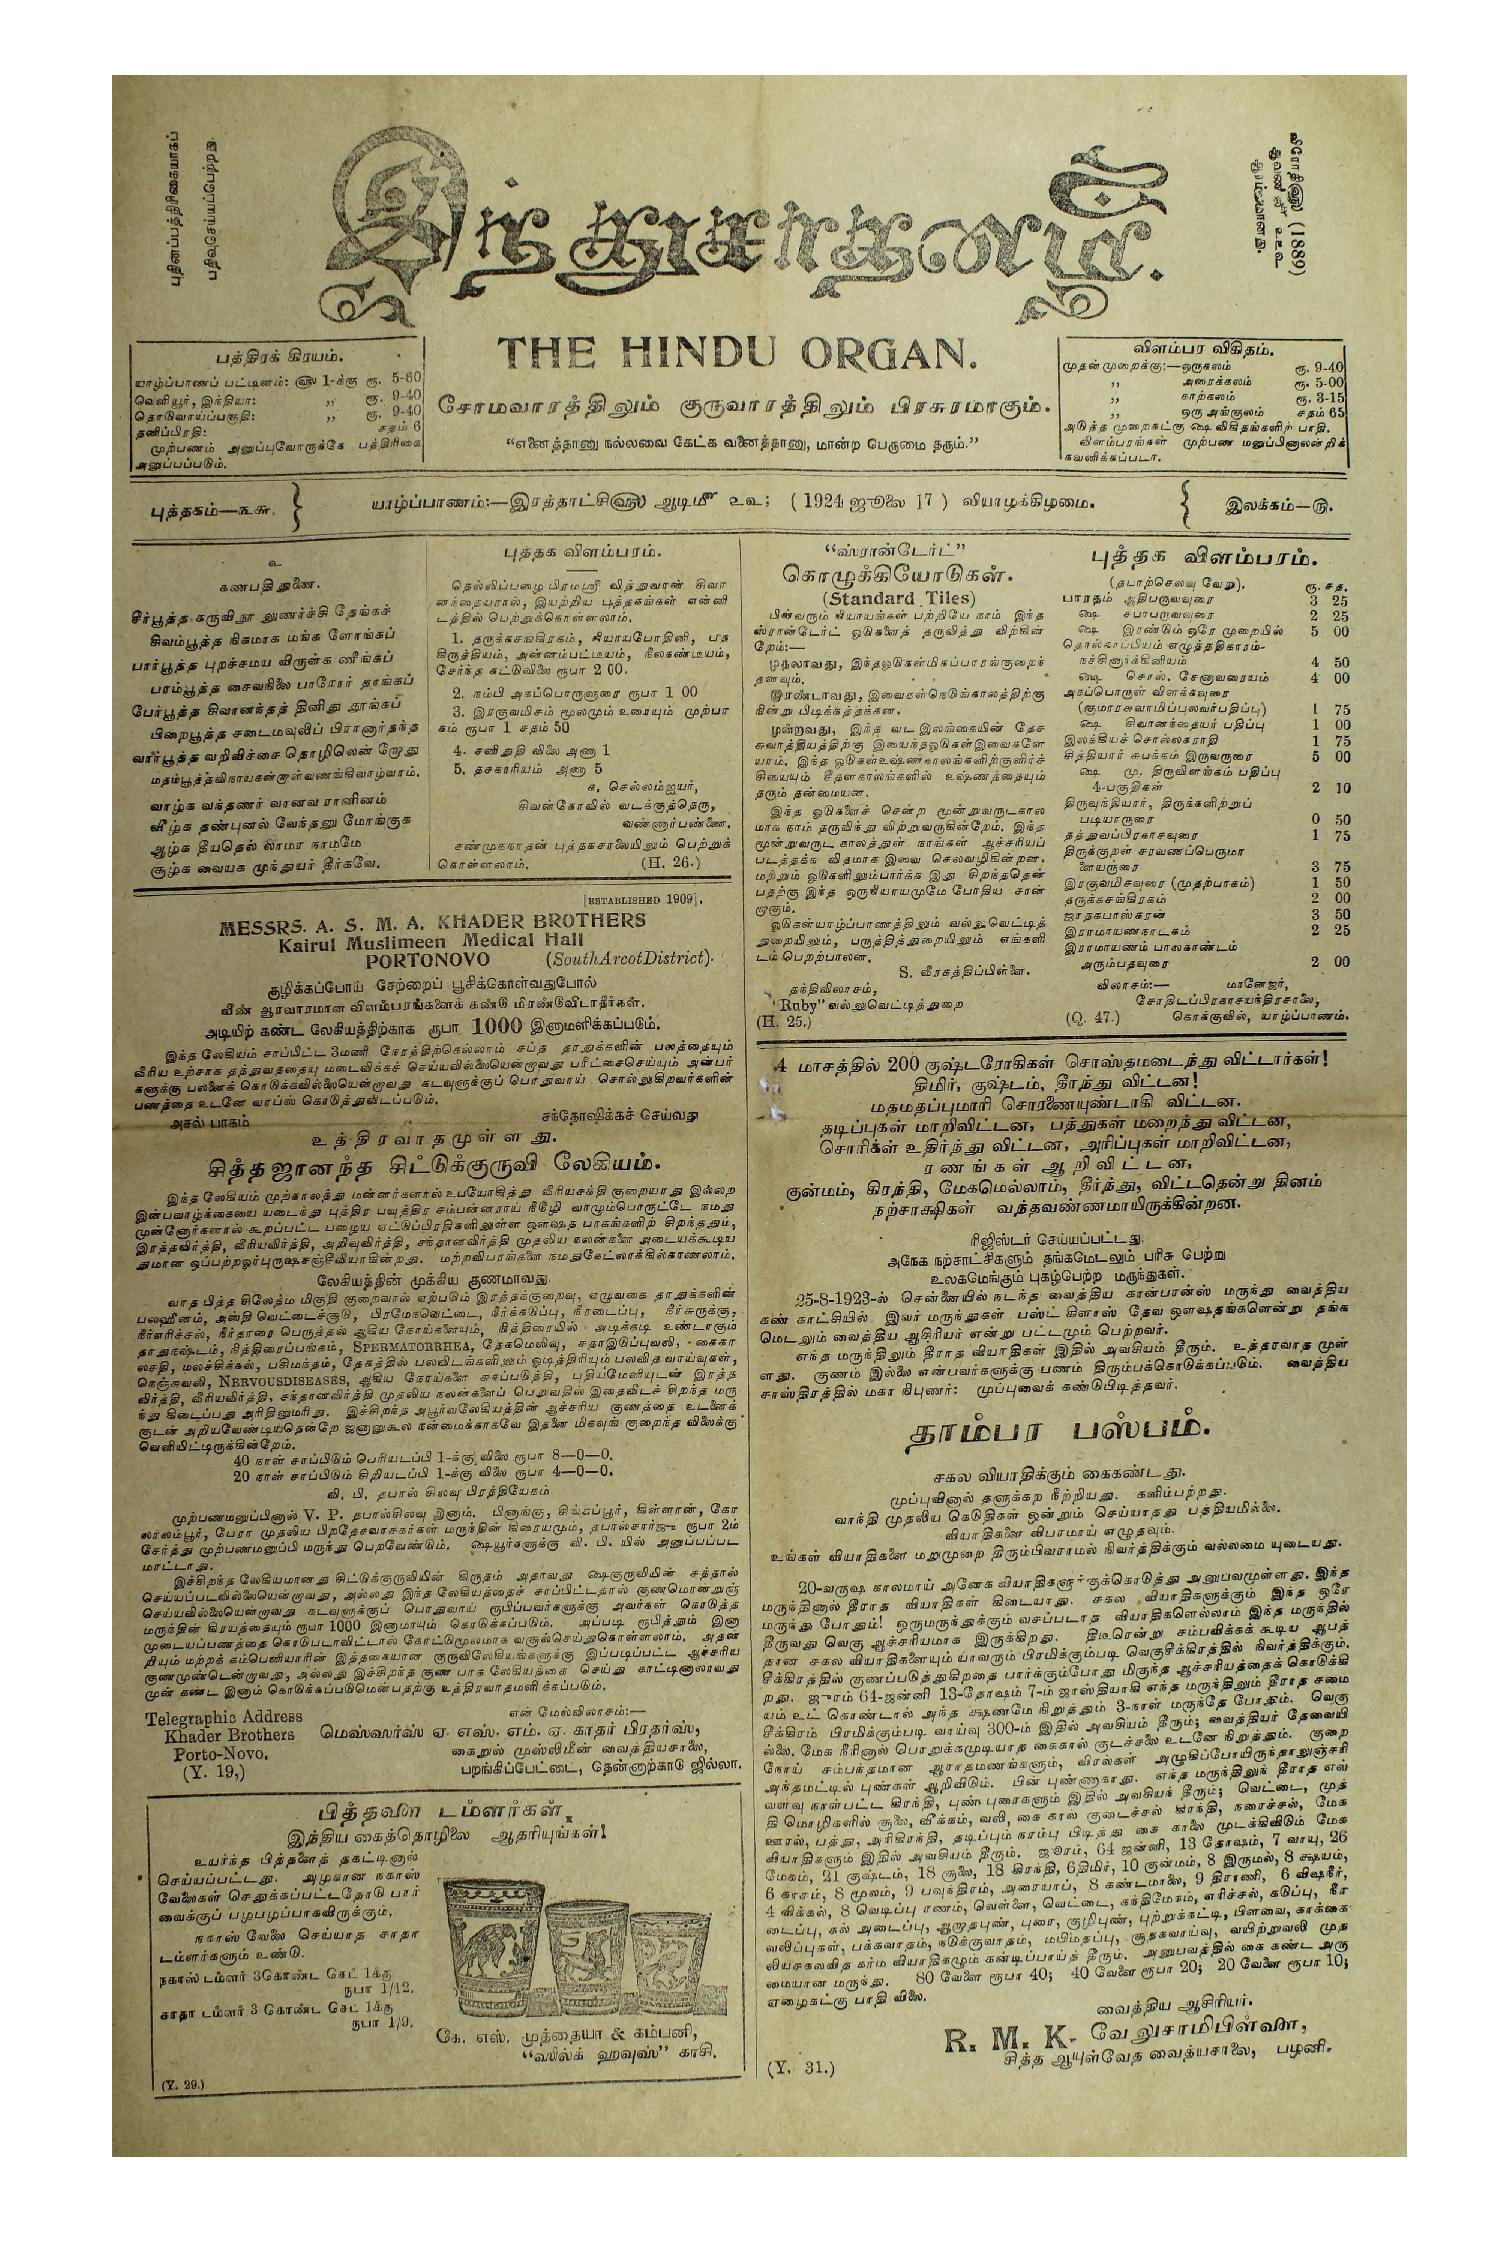 புதினப்பத்திரிகையாகப்
பதிவுசெய்யப்பெற்றது.
இந்துசாதனம்.
THE HINDU ORGAN.
சோமவாரத்திலும் குருவாரத்திலும் பிரசுரமாகும்.
“எனைத்தானு நல்லவை கேட்க வனைத்தானு, மான்ற பெருமை தரும்.”
பத்திரக் கிரயம்.
யாழ்ப்பாணப் பட்டினம்: ௵ 1-க்கு ரூ. 5-60
வெளியூர், இந்தியா: ,, ரூ. 9-40
தொடுவாய்ப்பகுதி: ,, ரூ. 9-40
தனிப்பிரதி: சதம் 6
முற்பணம் அனுப்புவோருக்கே பத்திரிகை
அனுப்பப்படும்.
விளம்பர விகிதம்.
முதன்முறைக்கு:—ஒருகலம் ரூ. 9-40
,, அரைக்கலம் ரூ. 5-00
,, காற்கலம் ரூ. 3-15
,, ஒரு அங்குலம் சதம் 65
அடுத்த முறைகட்கு ௸ விகிதங்களிற் பாதி.
விளம்பரங்கள் முற்பண மனுப்பினாலன்றிக்
கவனிக்கப்படா.
புத்தகம்—௩௬.
யாழ்ப்பாணம்:—இரத்தாட்சி௵ ஆடி௴ ௨௨; (1924 ஜூலை 17) வியாழக்கிழமை.
இலக்கம்—௫.
உ
கணபதி துணை.
சீர்பூத்த கருவிநூ லுணர்ச்சி தேங்கச்
சிவம்பூத்த நிகமாக மங்க ளோங்கப்
பார்பூத்த புறச்சமய விருள்க ணீங்கப்
பரம்பூத்த சைவநிலை பாரோர் தாங்கப்
பேர்பூத்த சிவானந்தத் தினிது தூங்கப்
பிறைபூத்த சடைமவுலிப் பிரானார்தந்த
வார்பூத்த வறிவிச்சை தொழிலென் றோது
மதம்பூத்தவிநாயகன்றாள்வணங்கிவாழ்வாம்.
வாழ்க வந்தணர் வானவ ரானினம்
வீழ்க தண்புனல் வேந்தனு மோங்குக
ஆழ்க தீயதெல் லாமர நாமமே
சூழ்க வையக முந்துயர் தீர்கவே.
புத்தக விளம்பரம்.
தெல்லிப்பழை பிரமஸ்ரீ வித்துவான் சிவா
னந்தையரால், இயற்றிய புத்தகங்கள் என்னி
டத்தில் பெற்றுக்கொள்ளலாம்.
1. தருக்கசங்கிரகம், நியாயபோதினி, பத
கிருத்தியம், அன்னம்பட்டீயம், நீலகண்டீயம்,
சேர்ந்த கட்டுவிலை ரூபா 2 00.
2. நம்பி அகப்பொருளுரை ரூபா 1 00
3. இரகுவமிசம் மூலமும் உரையும் முற்பா
கம் ரூபா 1 சதம் 50
4. சனிதுதி விலை அணா 1
5. தசகாரியம் அணா 5
ச. செல்லம்ஐயர்,
சிவன்கோவில் வடக்குத்தெரு,
வண்ணார்பண்ணை.
சண்முகநாதன் புத்தகசாலையிலும் பெற்றுக்
கொள்ளலாம். (H. 26.)
[ESTABLISHED 1909].
MESSRS. A. S. M. A. KHADER BROTHERS
Kairul Muslimeen Medical Hall
PORTONOVO (SouthArcotDistrict).
குழிக்கப்போய் சேற்றைப் பூசிக்கொள்வதுபோல்
வீண் ஆரவாரமான விளம்பரங்களைக் கண்டு மிரண்டுவிடாதீர்கள்.
அடியிற் கண்ட லேகியத்திற்காக ரூபா 1000 இனாமளிக்கப்படும்.
இந்த லேகியம் சாப்பிட்ட 3மணி நேரத்திற்கெல்லாம் சப்த தாதுக்களின் பலத்தையும்
வீரிய உற்சாக தத்துவத்தையு மடைவிக்கச் செய்யவில்லையென்றாவது பரீட்சைசெய்யும் அன்பர்
களுக்கு பலனைக் கொடுக்கவில்லையென்றாவது கடவுளுக்குப் பொதுவாய் சொல்லுகிறவர்களின்
பணத்தை உடனே வாப்ஸ் கொடுத்துவிடப்படும்.
அசல் பாகம் சந்தோஷிக்கச் செய்வது
உத்திரவாதமுள்ளது.
சித்தஜானந்த சிட்டுக்குருவி லேகியம்.
இந்த லேகியம் முற்காலத்து மன்னர்களால் உபயோகித்து வீரியசக்தி குறையாது இல்லற
இன்பவாழ்க்கையை யடைந்து புத்திர பவுத்திர சம்பன்னராய் நீடூழி வாழும்பொருட்டே நமது
முன்னோர்களால் கூறப்பட்ட பழைய ஏட்டுப்பிரதிகளிலுள்ள ஔஷத பாகங்களிற் சிறந்ததும்,
இரத்தவிர்த்தி, வீரியவிர்த்தி, அறிவுவிர்த்தி, சந்தானவிர்த்தி முதலிய நலன்களை அடையக்கூடிய
துமான ஒப்பற்றஓர்புருஷசஞ்சீவியாகின்றது. மற்றவிபரங்களை நமதுகேட்லாக்கில்காணலாம்.
லேகியத்தின் முக்கிய குணமாவது
வாத பித்த சிலேத்ம மிகுதி குறைவால் ஏற்படும் இரத்தக்குறைவு, எழுவகை தாதுக்களின்
பலஹீனம், அஸ்தி வெட்டைச்சூடு, பிரமேகவெட்டை, நீர்க்கடுப்பு, நீரடைப்பு, நீர்சுருக்கு,
நீர்எரிச்சல், நீர்தாரை பெருத்தல் ஆகிய நோய்களையும், நித்திரையில் அடிக்கடி உண்டாகும்
தாதுநஷ்டம், நித்திரைப்பங்கம், SPERMATORRHEA, தேகமெலிவு, சதாஇடுப்புவலி, கைகா
லசதி, மலச்சிக்கல், பசிமந்தம், தேகத்தில் பலவிடங்களிலும் ஓடித்திரியும் பலவித வாய்வுகள்,
நெஞ்சுவலி, NERVOUSDISEASES, ஆகிய நோய்களை சுகப்படுத்தி, புதியமேனியுடன் இரத்த
விர்த்தி, வீரியவிர்த்தி, சந்தானவிர்த்தி முதலிய நலன்களைப் பெறுவதில் இதைவிடச் சிறந்த மரு
ந்து கிடைப்பது அரிதினுமரிது. இச்சிறந்த அபூர்வலேகியத்தின் ஆச்சரிய குணத்தை உடனுக்
குடன் அறியவேண்டியதென்றே ஜனானுகூல நன்மைக்காகவே இதனை மிகவுங் குறைந்த விலைக்கு
வெளியிட்டிருக்கின்றோம்.
40 நாள் சாப்பிடும் பெரியடப்பி 1-க்கு விலை ரூபா 8—0—0.
20 நாள் சாப்பிடும் சிறியடப்பி 1-க்கு விலை ரூபா 4—0—0.
வி. பி. தபால் சிலவு பிரத்தியேகம்
முற்பணமனுப்பினால் V. P. தபால்சிலவு இனாம். பினாங்கு, சிங்கப்பூர், கிள்ளான், கோ
லர்லம்பூர், பேரா முதலிய பிறதேசவாசகர்கள் மருந்தின் கிரையமும், தபால்சார்ஜு ரூபா 2ம்
சேர்த்து முற்பணமனுப்பி மருந்து பெறவேண்டும். ௸யூர்களுக்கு வி. பி. யில் அனுப்பப்பட
மாட்டாது.
இச்சிறந்த லேகியமானது சிட்டுக்குருவியின் கிருதம் அதாவது ௸குருவியின் சத்தால்
செய்யப்படவில்லையென்றாவது, அல்லது இந்த லேகியத்தைச் சாப்பிட்டதால் குணமொன்றுஞ்
செய்யவில்லையென்றாவது கடவுளுக்குப் பொதுவாய் ரூபிப்பவர்களுக்கு அவர்கள் கொடுத்த
மருந்தின் கிரயத்தையும் ரூபா 1000 இனாமாயும் கொடுக்கப்படும். அப்படி ரூபித்தும் இனா
முடையப்பணத்தை கொடுபடாவிட்டால் கோட்டுமூலமாக வசூல்செய்துகொள்ளலாம். அதன்
றியும் மற்றக் கம்பெனியாரின் இத்தகையான குருவிலேகியங்களுக்கு இப்படிப்பட்ட ஆச்சரிய
குணமுண்டென்றாவது, அல்லது இச்சிறந்த குண பாக லேகியத்தை செய்து காட்டினாலாவது
முன் கண்ட இனாம் கொடுக்கப்படுமென்பதற்கு உத்திரவாதமளிக்கப்படும்.
Telegraphic Address
Khader Brothers
Porto-Novo.
(Y. 19,)
என் மேல்விலாசம்:—
மெஸ்ஸர்ஸ் ஏ. எஸ். எம். ஏ. காதர் பிரதர்ஸ்,
கைறுல் முஸ்லிமீன் வைத்தியசாலை,
பறங்கிப்பேட்டை, தென்னாற்காடு ஜில்லா.
பித்தளை டம்ளர்கள்
இந்திய கைத்தொழிலை ஆதரியுங்கள்!
உயர்ந்த பித்தளைத் தகட்டினால்
செய்யப்பட்டது. அழகான நகாஸ்
வேலைகள் செதுக்கப்பட்டதோடு பார்
வைக்குப் பழபழப்பாகவிருக்கும்.
நகாஸ் வேலை செய்யாத சாதா
டம்ளர்களும் உண்டு.
நகாஸ் டம்ளர் 3கொண்ட செட் 1க்கு
நபா 1/12.
சாதா டம்ளர் 3 கொண்ட செட் 1க்கு
நபா 1/9.
கே. எஸ். முத்தையா & கம்பனி,
“ஸில்க் ஹவுஸ்” காசி.
(Y. 29.)
“ஸ்ரான்டேர்ட்”
கொழுக்கியோடுகள்.
(Standard Tiles)
பின்வரும் நியாயங்கள் பற்றியே நாம் இந்த
ஸ்ரான்டேர்ட் ஓடுகளைத் தருவித்து விற்கின்
றேம்:—
முதலாவது, இந்தஓடுகள்மிகப்பாரங்குறைந்
தனவும்.
இரண்டாவது, இவைகள்நெடுங்காலத்திற்கு
நின்று பிடிக்கத்தக்கன.
மூன்றாவது, இந்த வட இலங்கையின் தேச
சுவாத்தியத்திற்கு இயைந்தஓடுகள்இவைகளே
யாம். இந்த ஓடுகள்உஷ்ணகாலங்களிற்குளிர்ச்
சியையும் சீதளகாலங்களில் உஷ்ணத்தையும்
தரும் தன்மையன.
இந்த ஓடுகளைச் சென்ற மூன்றுவருடகால
மாக நாம் தருவித்து விற்றுவருகின்றோம். இந்த
மூன்றுவருட காலத்துள் நாங்கள் ஆச்சரியப்
படத்தக்க விதமாக இவை செலவழிகின்றன.
மற்றும் ஓடுகளிலும்பார்க்க இது சிறந்ததென்
பதற்கு இந்த ஒருநியாயமுமே போதிய சான்
றாகும்.
ஓடுகள்யாழ்ப்பாணத்திலும் வல்லுவெட்டித்
துறையிலும், பருத்தித்துறையிலும் எங்களி
டம் பெறற்பாலன.
S. வீரகத்திப்பிள்ளை.
தந்திவிலாசம்,
“Ruby” வல்லுவெட்டித்துறை
(H. 25.)
புத்தக விளம்பரம்.
(தபாற்செலவு வேறு). ரூ. சத.
பாரதம் ஆதிபருவவுரை 3 25
௸ சபாபருவவுரை 2 25
௸ இரண்டும் ஒரே முறையில் 5 00
தொல்காப்பியம் எழுத்ததிகாரம்-
நச்சினார்க்கினியம் 4 50
௸ சொல். சேனாவரையம் 4 00
அகப்பொருள் விளக்கவுரை
(குமாரசுவாமிப்புலவர்பதிப்பு) 1 75
௸ சிவானந்தையர் பதிப்பு 1 00
இலக்கியச் சொல்லகராதி 1 75
சித்தியார் சுபக்கம் இருவருரை 5 00
௸ மு. திருவிளங்கம் பதிப்பு
4-பகுதிகள் 2 10
திருவுந்தியார், திருக்களிற்றுப்
படியாருரை 0 50
தத்துவப்பிரகாசவுரை 1 75
திருக்குறள் சரவணப்பெருமா
ளையருரை 3 75
இரகுவமிசவுரை (முதற்பாகம்) 1 50
தருக்கசங்கிரகம் 2 00
ஜாதகபாஸ்கரன் 3 50
இராமாயணநாடகம் 2 25
இராமாயணம் பாலகாண்டம்
அரும்பதவுரை 2 00
விலாசம்:— மானேஜர்,
சோதிடப்பிரகாசயந்திரசாலை,
(Q. 47.) கொக்குவில், யாழ்ப்பாணம்.
4 மாசத்தில் 200 குஷ்டரோகிகள் சொஸ்தமடைந்து விட்டார்கள்!
திமிர், குஷ்டம், தீர்ந்து விட்டன!
மதமதப்புமாறி சொரணையுண்டாகி விட்டன.
தடிப்புகள் மாறிவிட்டன, பத்துகள் மறைந்து விட்டன,
சொரிகள் உதிர்ந்து விட்டன, அரிப்புகள் மாறிவிட்டன,
ரணங்கள் ஆறிவிட்டன,
குன்மம், கிரந்தி, மேகமெல்லாம், தீர்ந்து, விட்டதென்று தினம்
நற்சாக்ஷிகள் வந்தவண்ணமாயிருக்கின்றன.
ரிஜிஸ்டர் செய்யப்பட்டது
அநேக நற்சாட்சிகளும் தங்கமெடலும் பரிசு பெற்று
உலகமெங்கும் புகழ்பெற்ற மருந்துகள்.
25-8-1923-ல் சென்னையில் நடந்த வைத்திய கான்பரன்ஸ் மருந்து வைத்திய
கண் காட்சியில் இவர் மருந்துகள் பஸ்ட் கிளாஸ் தேவ ஔஷதங்களென்று தங்க
மெடலும் வைத்திய ஆசிரியர் என்று பட்டமும் பெற்றவர்.
எந்த மருந்திலும் தீராத வியாதிகள் இதில் அவசியம் தீரும். உத்தாரவாத முள்
ளது. குணம் இல்லை என்பவர்களுக்கு பணம் திரும்பக்கொடுக்கப்படும். வைத்திய
சாஸ்திரத்தில் மகா நிபுணர்: முப்புவைக் கண்டுபிடித்தவர்.
தாம்பர பஸ்பம்.
சகல வியாதிக்கும் கைகண்டது.
முப்புவினால் தளுக்கற நீற்றியது. களிம்பற்றது.
வாந்தி முதலிய கெடுதிகள் ஒன்றும் செய்யாதது பத்தியமில்லை.
வியாதிகளை விபரமாய் எழுதவும்.
உங்கள் வியாதிகளை மறுமுறை திரும்பிவராமல் நிவர்த்திக்கும் வல்லமை யுடையது.
20-வருஷ காலமாய் அனேக வியாதிகளுக்குக்கொடுத்து அனுபவமுள்ளது. இந்த
மருந்தினால் தீராத வியாதிகள் கிடையாது. சகல வியாதிகளுக்கும் இந்த ஒரே
மருந்து போதும்! ஒருமருந்துக்கும் வசப்படாத வியாதிகளெல்லாம் இந்த மருந்தில்
தீருவது வெகு ஆச்சரியமாக இருக்கிறது. திடீரென்று சம்பவிக்கக் கூடிய ஆபத்
தான சகல வியாதிகளையும் யாவரும் பிரமிக்கும்படி வெகுசீக்கிரத்தில் நிவர்த்திக்கும்.
சீக்கிரத்தில் குணப்படுத்துகிறதை பார்க்கும்போது மிகுந்த ஆச்சரியத்தைக் கொடுக்கி
றது. ஜுரம் 64-ஜன்னி 13-தோஷம் 7-ம் ஜாஸ்தியாகி எந்த மருந்திலும் தீராத சமை
யம் உட் கொண்டால் அந்த க்ஷணமே நிறுத்தும் 3-நாள் மருந்தே போதும். வெகு
சீக்கிரம் பிரமிக்கும்படி வாய்வு 300-ம் இதில் அவசியம் தீரும்; வைத்தியர் தேவையி
ல்லை. மேக நீரினால் பொறுக்கமுடியாத கைகால் குடச்சலை உடனே நிறுத்தும். குறை
நோய் சம்பந்தமான ஆராதரணங்களும், விரல்கள் அழுகிப்போயிருந்தாலுஞ்சரி
அந்தமட்டில் புண்கள் ஆறிவிடும். பின் புண்ணாகாது. எந்த மருந்திலுந் தீராத எவ்
வளவு நாள்பட்ட கிரந்தி, புண் புரைகளும் இதில் அவசியந் தீரும்; வெட்டை, முத்
தி மொழிகளில் சூலை, வீக்கம், வலி, கை கால குடைச்சல் கிரந்தி, நரைச்சல், மேக
ஊரல், பத்து, அரிகிரந்தி, தடிப்பும் நரம்பு பிடித்து கை காலை முடக்கிவிடும் மேக
வியாதிகளும் இதில் அவசியம் தீரும். ஜுரம், 64 ஜன்னி, 13 தோஷம், 7 வாயு, 26
மேகம், 21 குஷ்டம், 18 சூலை, 18 கிரந்தி, 6திமிர், 10 குன்மம், 8 இருமல், 8 க்ஷயம்,
6 காசம், 8 மூலம், 9 பவுந்திரம், அரையாப், 8 கண்டமாலை, 9 திராணி, 6 விஷநீர்,
4 விக்கல், 8 வெடிப்பு ரணம், வெள்ளை, வெட்டை, கந்திமேகம், எரிச்சல், கடுப்பு, நீர
டைப்பு, கல் அடைப்பு, ஆறாதபுண், புரை, குழிபுண், புற்றுக்கட்டி, பிளவை, காக்கை
வலிப்புகள், பக்கவாதம், நடுக்குவாதம், மயிமதப்பு, சூதகவாய்வு, வயிற்றுவலி முத
லியசகலவித கர்ம வியாதிகளும் கண்டிப்பாய்த் தீரும். அனுபவத்தில் கை கண்ட அரு
மையான மருந்து. 80 வேளை ரூபா 40; 40 வேளை ரூபா 20; 20 வேளை ரூபா 10;
ஏழைகட்கு பாதி விலை.
வைத்திய ஆசிரியர்.
R. M. K. வேலுசாமிபிள்ளை,
சித்த ஆயுள்வேத வைத்யசாலை, பழனி.
(Y. 31.)